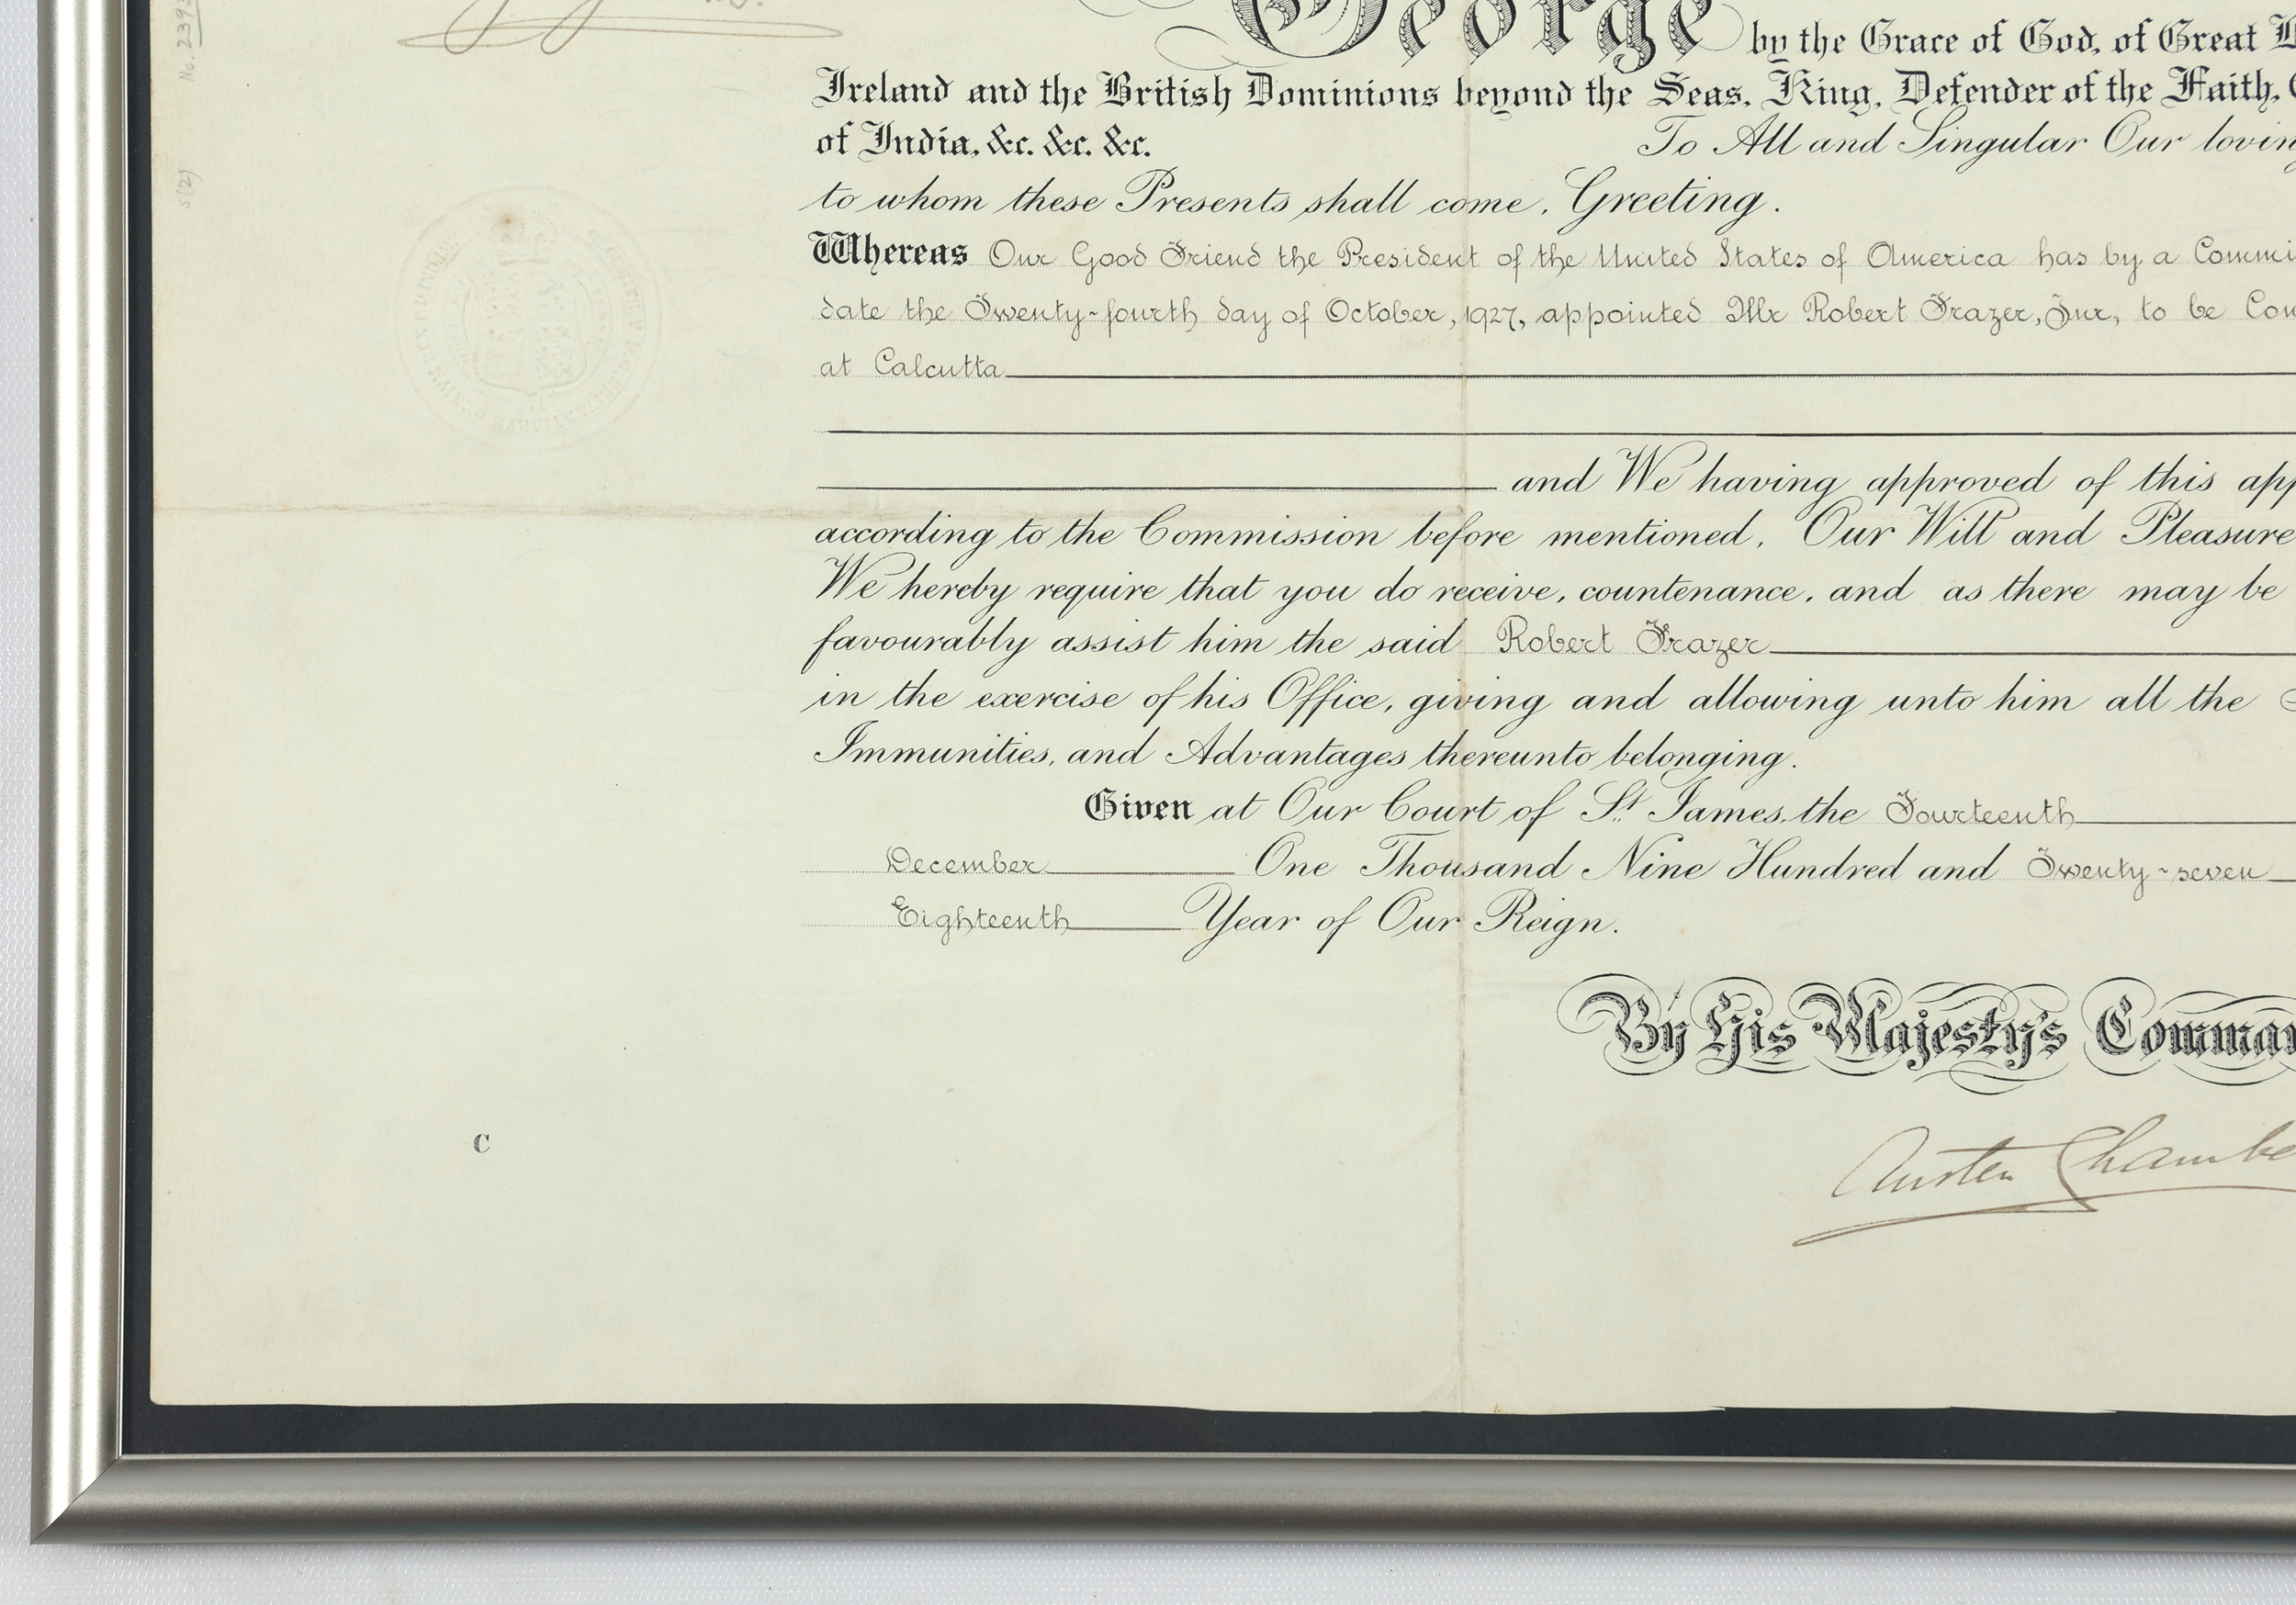 No. 239
5(2)
George by the Grace of God, of Great
Ireland and the British Dominions beyond the Seas, King, Defender of the Faith,
of India, &c. &c. &c. To All and Singular Our lovin
to whom these Presents shall come, Greeting.
Whereas Our Good Friend the President of the United States of America has by a Commi
date the Twenty-fourth day of October, 1927, appointed Mr Robert Frazer, Jnr, to be Con
at Calcutta
and We having approved of this app
according to the Commission before mentioned, Our Will and Pleasure
We hereby require that you do receive, countenance, and as there may be
favourably assist him the said Robert Frazer
in the exercise of his Office, giving and allowing unto him all the
Immunities, and Advantages thereunto belonging.
Given at Our Court of St. James, the Fourteenth
December One Thousand Nine Hundred and Twenty-seven
Eighteenth Year of Our Reign.
By His Majesty's Comman
Austen Chambe
C